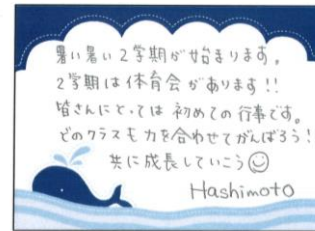 暑い暑い2学期が始まります。
2学期は体育会があります!!
皆さんにとっては初めての行事です。
どのクラスも力を合わせてがんばろう!
共に成長していこう☺
Hashimoto